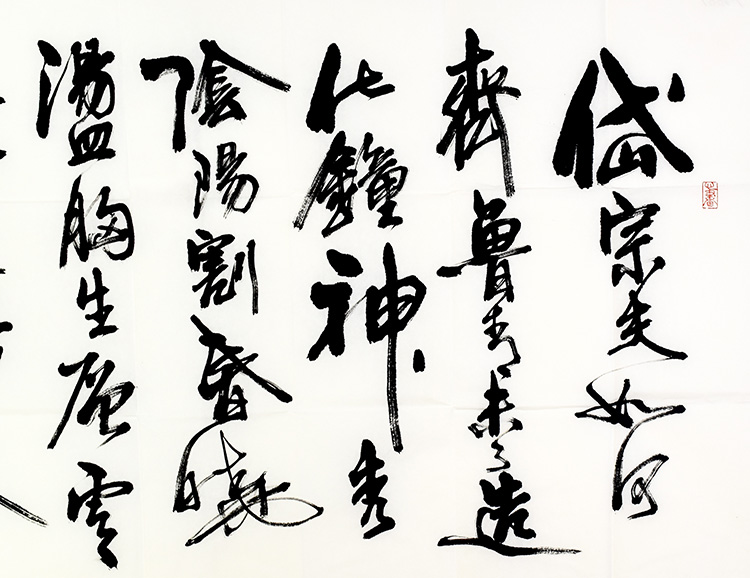 岱宗夫如何
齊魯青未了造
化鐘神秀
陰陽割昏曉
盪胸生層雲